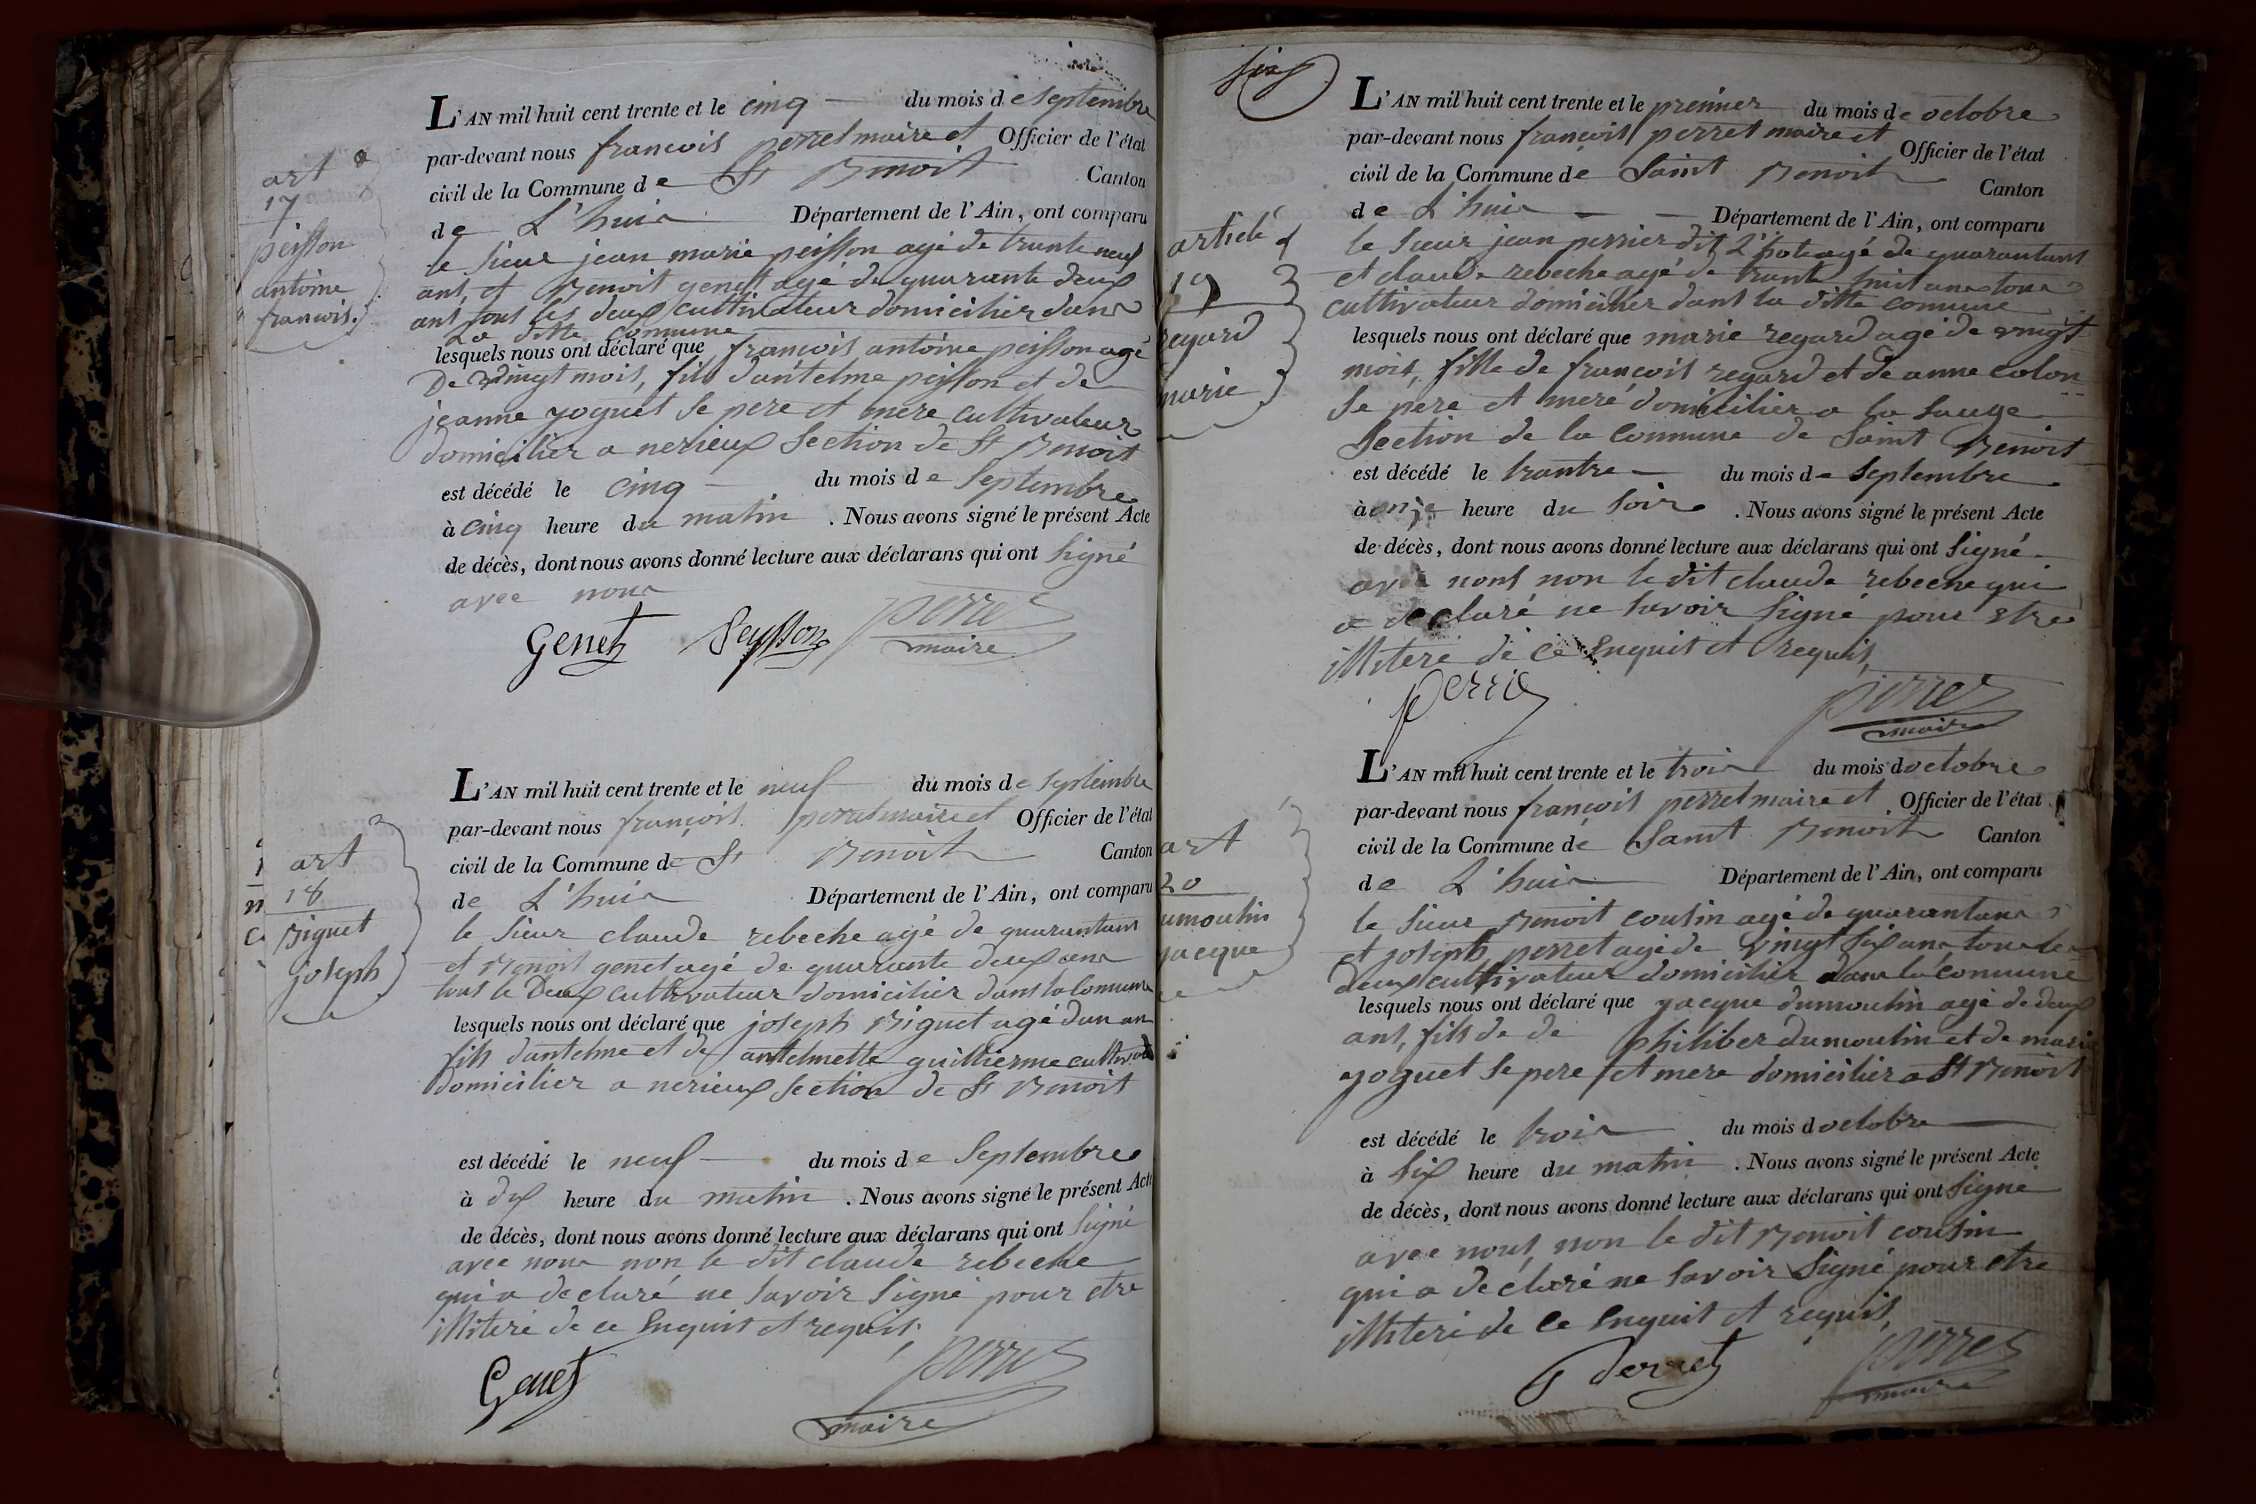 art
17
peisson
antoine
francois.
L'AN mil huit cent trente et le cinq du mois de septembre
par-devant nous francois perret maire et Officier de l'état
civil de la Commune de St Benoit Canton
de L'huis Département de l'Ain, ont comparu
le sieur jean marie peisson agé de trante neuf
ans, et Benoit genet agé de quarante deux
ans tous les deux cultivateur domicilier dans
La ditte Commune
lesquels nous ont déclaré que francois antoine peisson agé
De vingt mois, fils dantelme peisson et de
jeanne yoguet se pere et mere cultivateur
domicilier a nerieux Section de St Benoit
est décédé le cinq du mois de Septembre
à cinq heure du matin. Nous avons signé le présent Acte
de décès, dont nous avons donné lecture aux déclarans qui ont signé
avec nous
Genet Peysson perret
maire
art
18
Biguet
joseph
L'AN mil huit cent trente et le neuf du mois de septembre
par-devant nous françois perret maire et Officier de l'état
civil de la Commune de St Benoit Canton
de L'huis Département de l'Ain, ont comparu
le sieur claude rebeche agé de quarantans
et Benoit genet agé de quarante deux ans
tous le Deux cultivateur domicilier dans la Commune
lesquels nous ont déclaré que joseph Biguet agé dun an
fils dantelme et de antelmette guillierme cultivat
domicilier a nerieux section de St Benoit
est décédé le neuf du mois de Septembre
à dix heure du matin. Nous avons signé le présent Acte
de décès, dont nous avons donné lecture aux déclarans qui ont signé
avec nous non le dit claude rebeche
qui a declaré ne savoir signé pour etre
illiteré de ce enquis et requis,
Genet perret
maire
six
article
19
regard
marie
L'AN mil huit cent trente et le premier du mois de octobre
par-devant nous françois perret maire et Officier de l'état
civil de la Commune dé Saint Benoit Canton
de L'huis Département de l'Ain, ont comparu
le sieur jean perrier dit L'pote agé de quarantans
et claude rebeche agé de trante huit ans tous
cultivateur domicilier dans la ditte comune
lesquels nous ont déclaré que marie regard agé de vingt
mois, fille de françois regard et de anne colon
se pere et meré domicilier a la sauge
Section de la Commune de Saint Benoit
est décédé le trantre du mois de septembre
à onze heure du soir. Nous avons signé le présent Acte
de décès, dont nous avons donné lecture aux déclarans qui ont signé
avec nous non le dit claude rebeche qui
a declaré ne savoir signé pour etre
illiteré de ce enquis et requis,
perrie perret
maire
art
20
umoulin
yacque
L'AN mil huit cent trente et le trois du mois doctobre
par-devant nous françois perret maire et Officier de l'état
civil de la Commune dé Saint Benoit Canton
de L'huis Département de l'Ain, ont comparu
le sieur Benoit cousin agé de quarantans
et joseph perret agé de vingt six ans tous le
deux cultivateur domicilier dans la comune
lesquels nous ont déclaré que yacque dumoulin agé de deux
ans, fils de de philiber dumoulin et de marie
yoguet se pere et mere domicilier a St Benoit
est décédé le trois du mois doctobre
à six heure du matin. Nous avons signé le présent Acte
de décès, dont nous avons donné lecture aux déclarans qui ont signé
avec nous non le dit Benoit cousin
qui a declaré ne savoir signé pour etre
illiteré de ce enquit et requis,
perret perret
maire